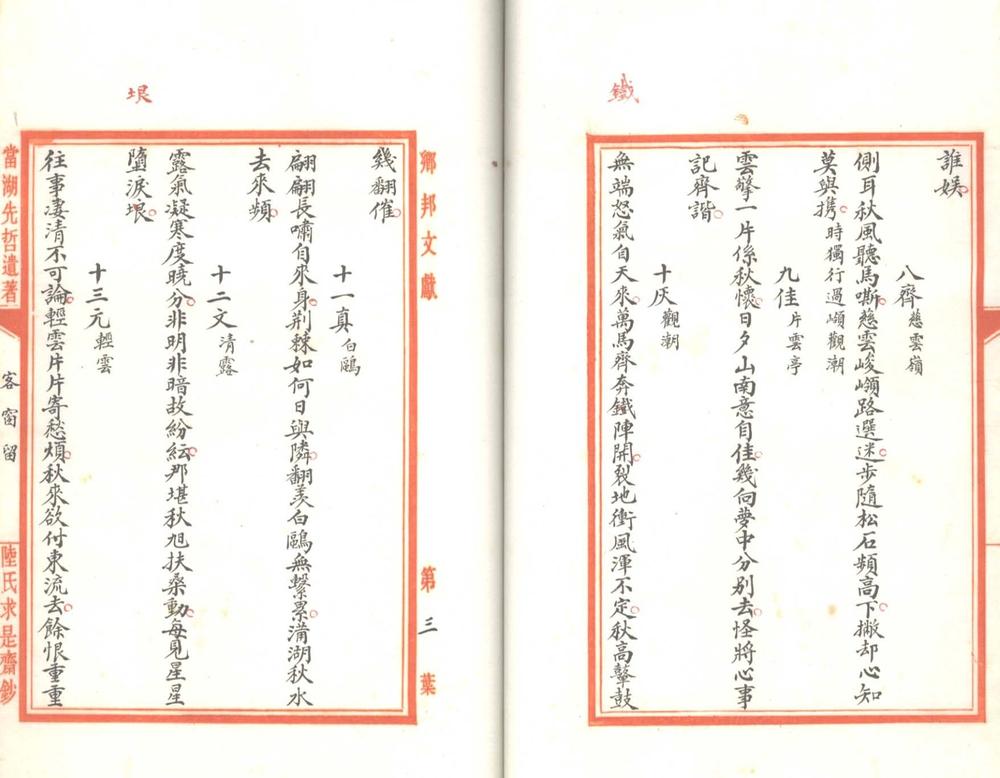 鐵
誰娛
八齊慈雲嶺
側耳秋風聽馬嘶慈雲峻嶺路選迷步隨松石頻高下撇却心知
莫與携時獨行過嶺觀潮
九佳片雲亭
雲擎一片係秋懷日夕山南意自佳幾向夢中分別去怪將心事
記齊諧
十灰觀潮
無端怒氣自天來萬馬齊奔鐵陣開裂地衝風渾不定秋高鼙鼓
垠
鄉邦文獻
第三葉
幾翻催
十一真白鷗
翩翩長嘯自來身荆棘如何日與隣翻羨白鷗無繫累滿湖秋水
去來頻
十二文清露
露氣凝寒度曉分非明非暗故紛紜那堪秋旭扶桑動每見星星
墮淚垠
十三元輕雲
往事淒清不可論輕雲片片寄愁煩秋來欲付東流去餘恨重重
當湖先哲遺著
客窗留
陸氏求是齋鈔